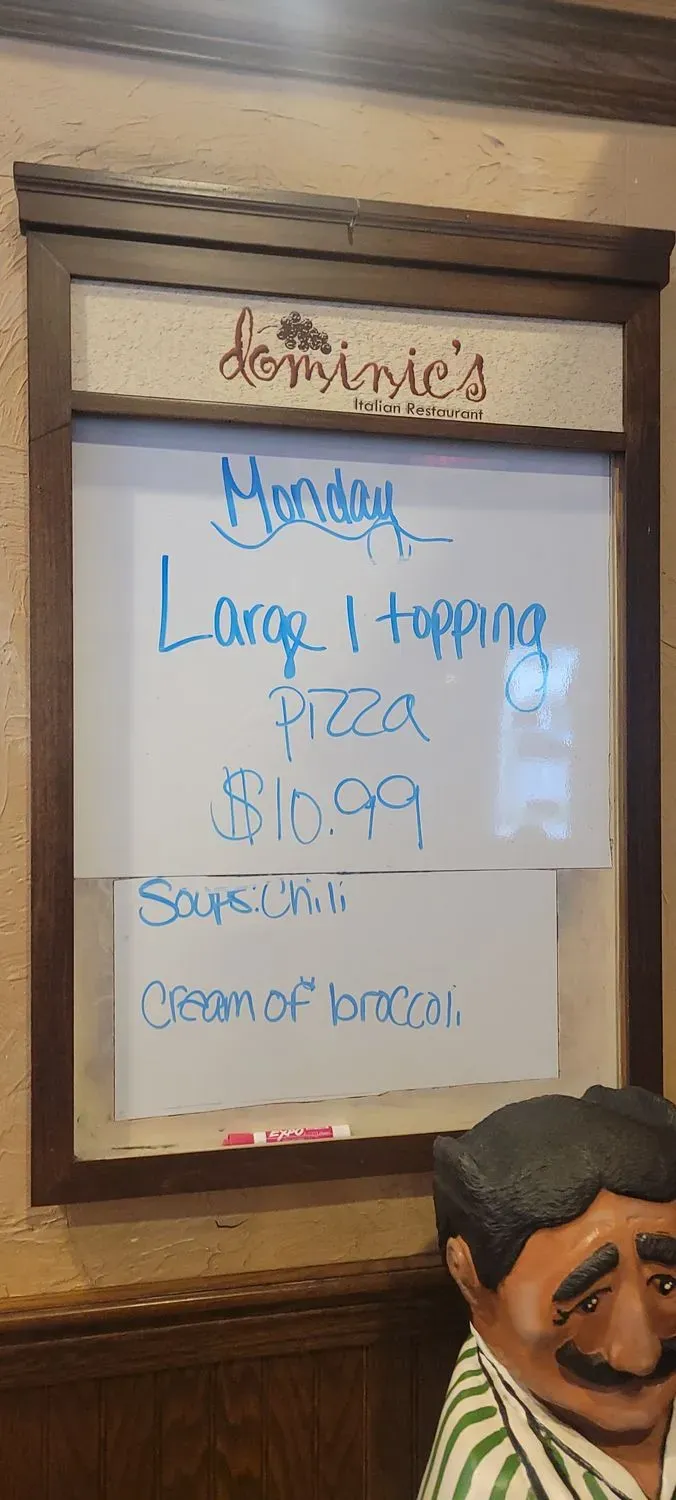 dominic's
Italian Restaurant
Monday
Large 1 topping
pizza
$10.99
Soups: Chili
Cream of broccoli
EXPO